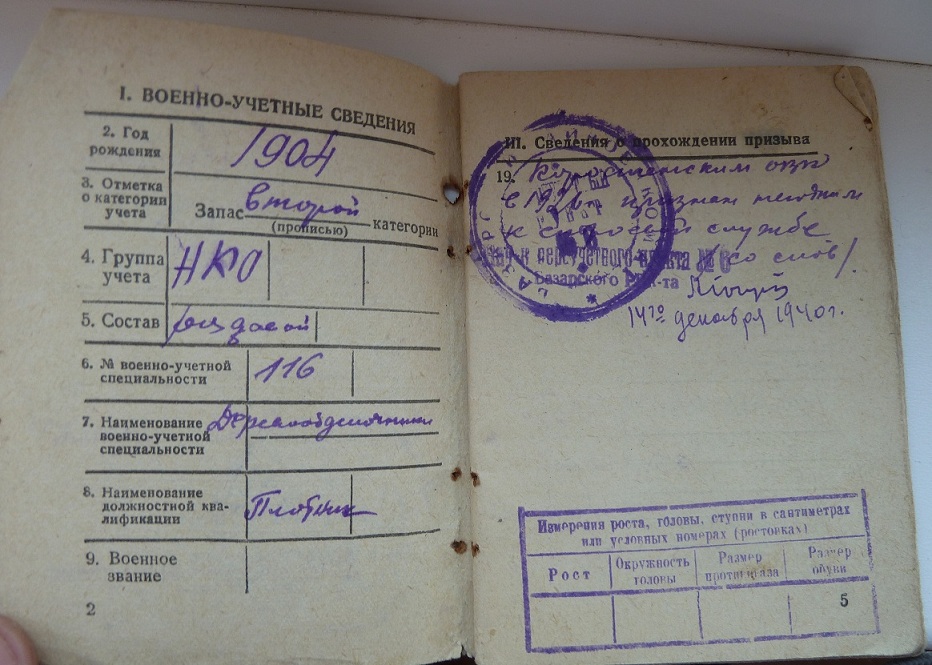 I. ВОЕННО-УЧЕТНЫЕ СВЕДЕНИЯ
2. Год
рождения
1904
3. Отметка
о категории
учета
Запас второй категории
(прописью)
4. Группа
учета
НКО
5. Состав
рядовой
6. № военно-учетной
специальности
116
7. Наименование
военно-учетной
специальности
Деревообделочники
8. Наименование
должностной ква-
лификации
Плотник
9. Военное
звание
2
III. Сведения о прохождении призыва
19.
в 1926 признан негодным
к строевой службе
со слов/
пункта № 6
Базарского
14го декабря 1940 г.
Измерения роста, головы, ступни в сантиметрах
или условных номерах (ростовках)
Рост
Окружность
головы
Размер
противогаза
Размер
обуви
5